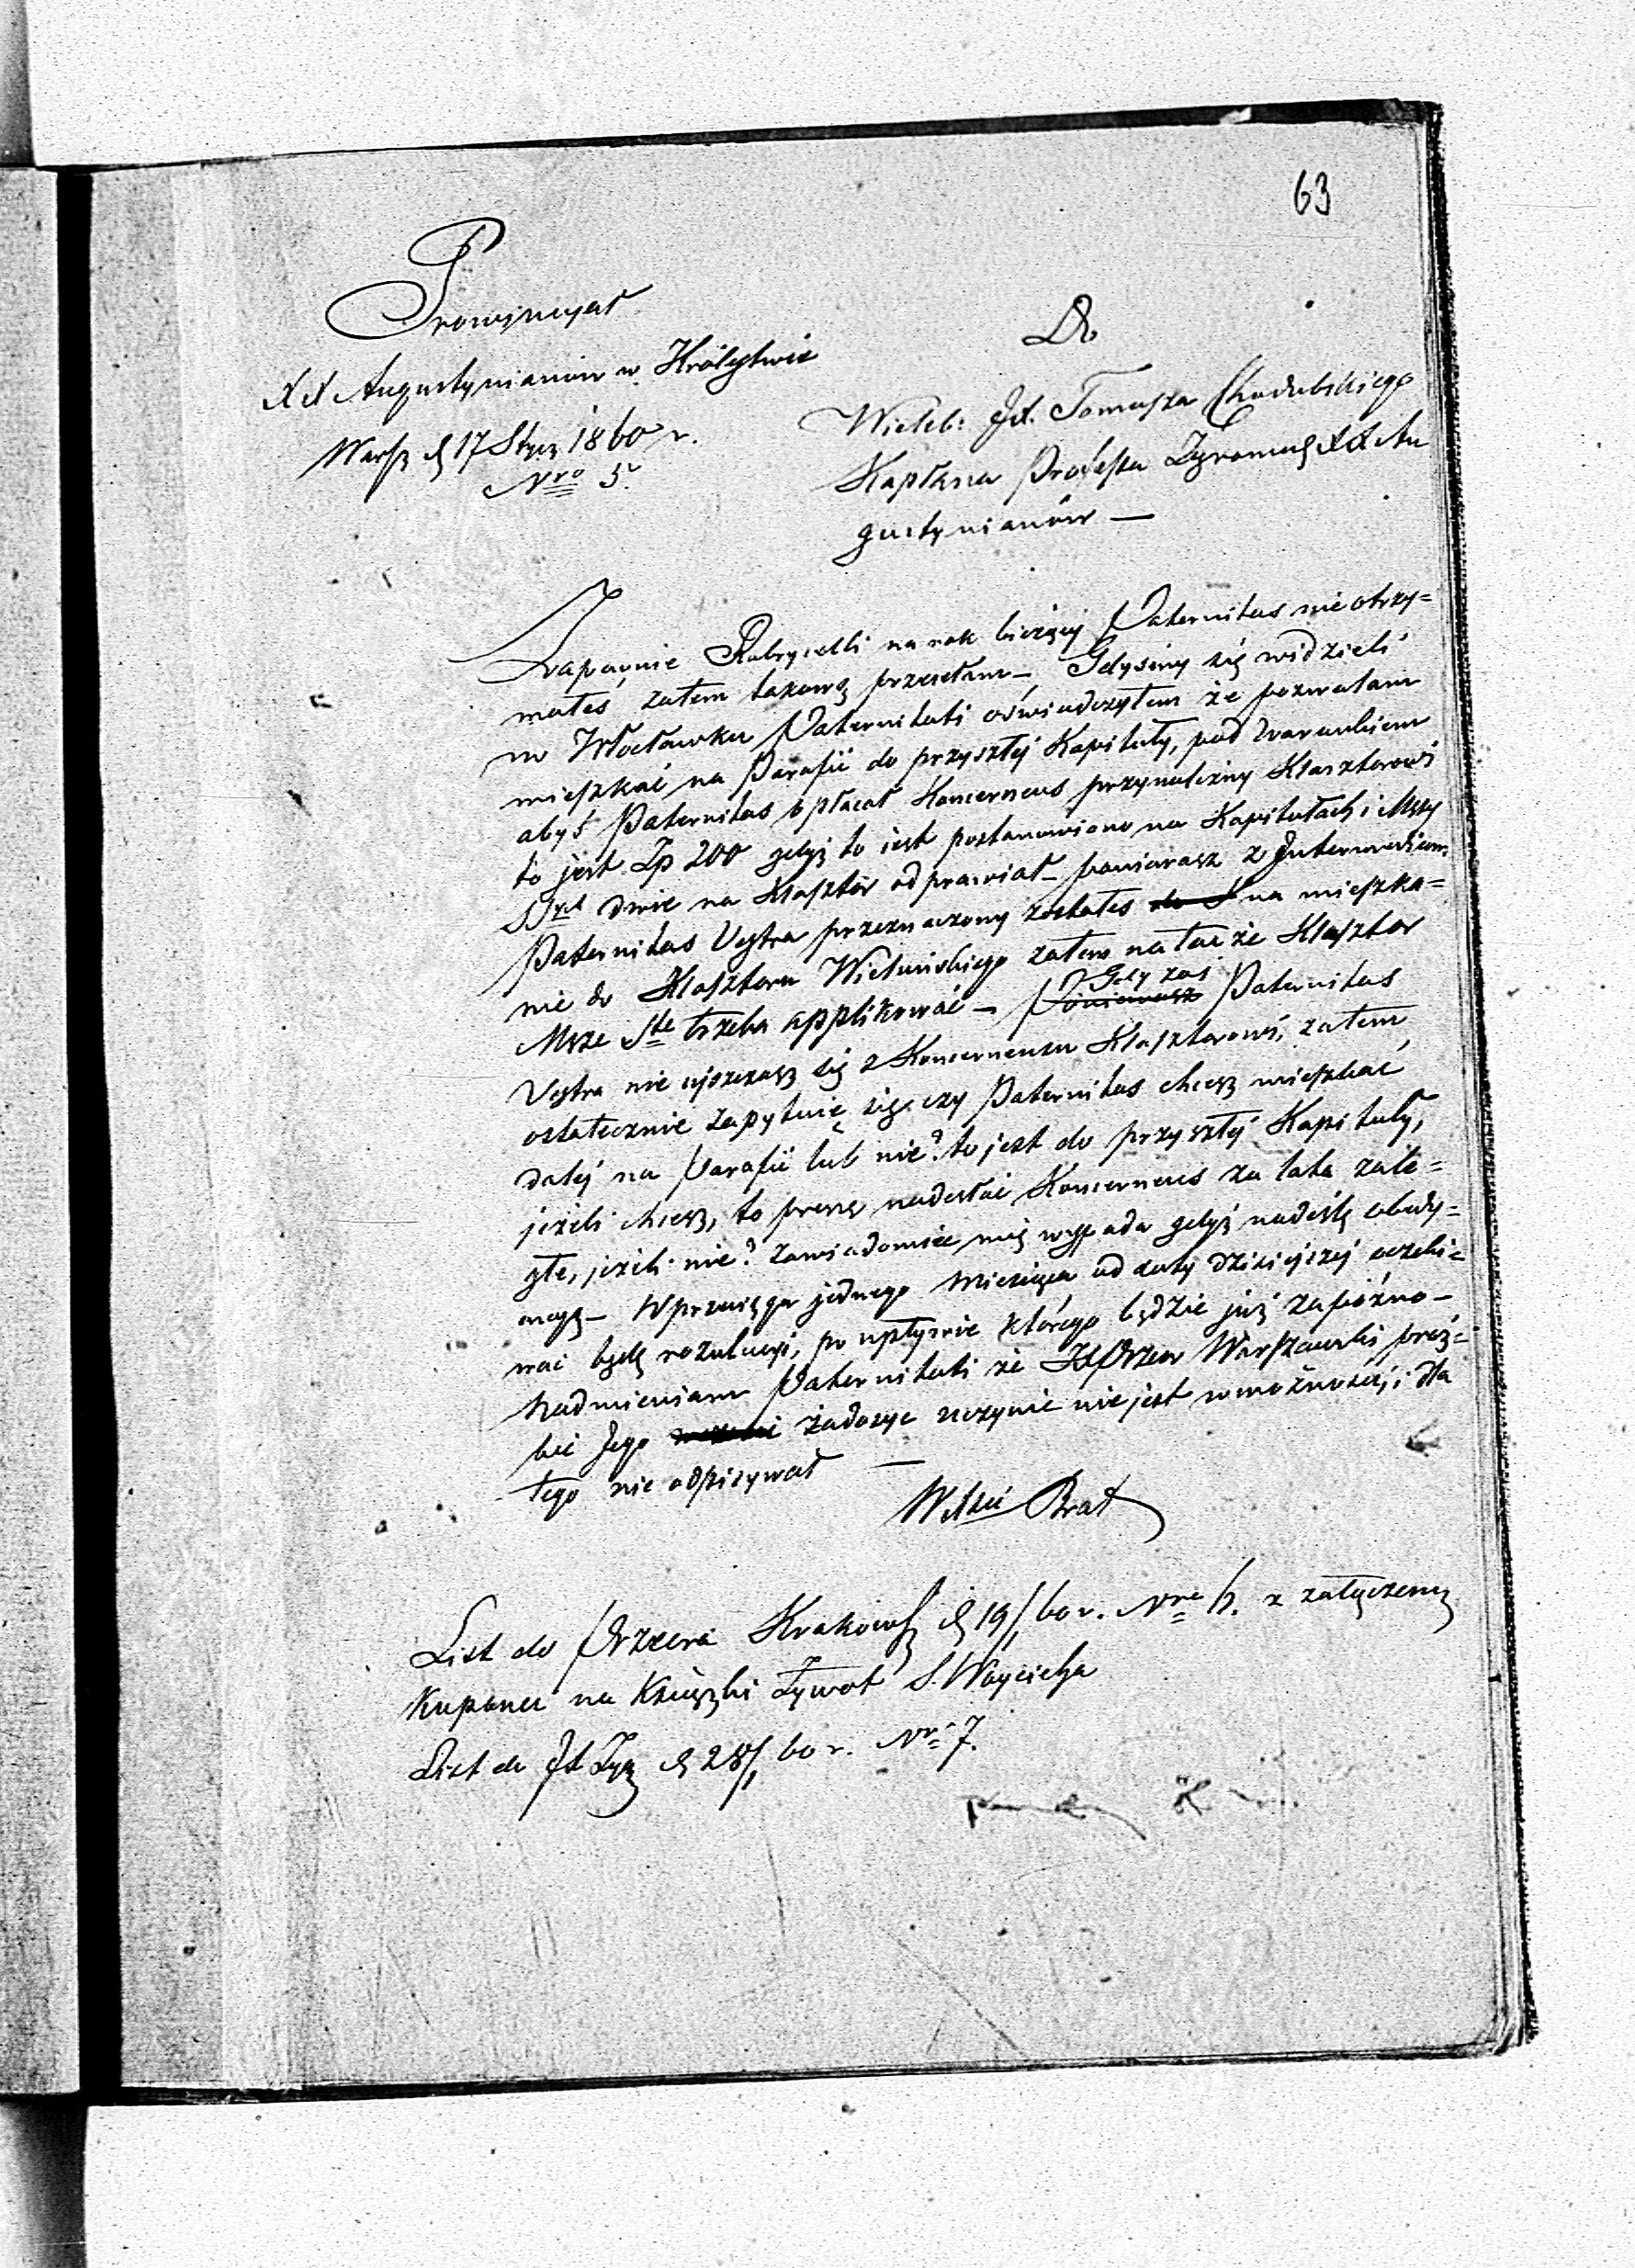 63
Prowincyał
XX Augustynianów w Królestwie
Warsz d 17 Stycz 1860 r.
Nro 5.
Do
Wieleb: JX. Tomasza Chodubskiego
Kapłana Professa Zgromadz XX Au
gustynianów —
Zapewnie Rubrycelli na rok bieżący Paternitas nie otrzy=
małeś zatem takową przesełam — Gdyśmy się widzieli
w Włocławku Paternitati oświadczyłem że pozwalam
mieszkać na Parafii do przyszłej Kapituły, pod warunkiem
abyś Paternitas opłacał Koncernens przynależny Klasztorowi
to jest Zp 200 gdyż to jest postanowiono na Kapitułach i Mszy
SSych dwie na Klasztór odprawiał — ponieważ z Intermedium
Paternitas Vestra przeznaczony zostałeś na mieszka=
nie do Klasztoru Wieluńskiego zatem na też że Klasztor
Msze Ste trzeba applikować — Gdy zaś Ponieważ Paternitas
Vestra nie ujszczasz się z Koncernensu Klasztorowi, zatem
ostatecznie zapytuię się czy Paternitas chcesz mieszkać
dalej na Parafii lub nie? to jest do przyszłej Kapituły,
jeżeli chcesz, to proszę nadesłać Koncernens za lata zale=
głe, jeżeli nie? zawiadomić mię wypada gdyż nadeślę obedy=
encyą — W przeciągu jednego miesiąca od daty dzisiejszej oczeki=
wać będę rezolucyi, po upływie którego będzie już zapóźno —
Nadmieniam Paternitati że JX Przeor Warszawski proź=
bie Jego żadosyć uczynić nie jest w możności, i dla
tego nie odpisywał —
Brat
List do Przeora Krakows d 19/1 60 r. Nro 6. z załączeniem
Kuponu na Książki Żywot S. Woyciecha
List do JX Zyg d 28/1 60 r. Nro 7.